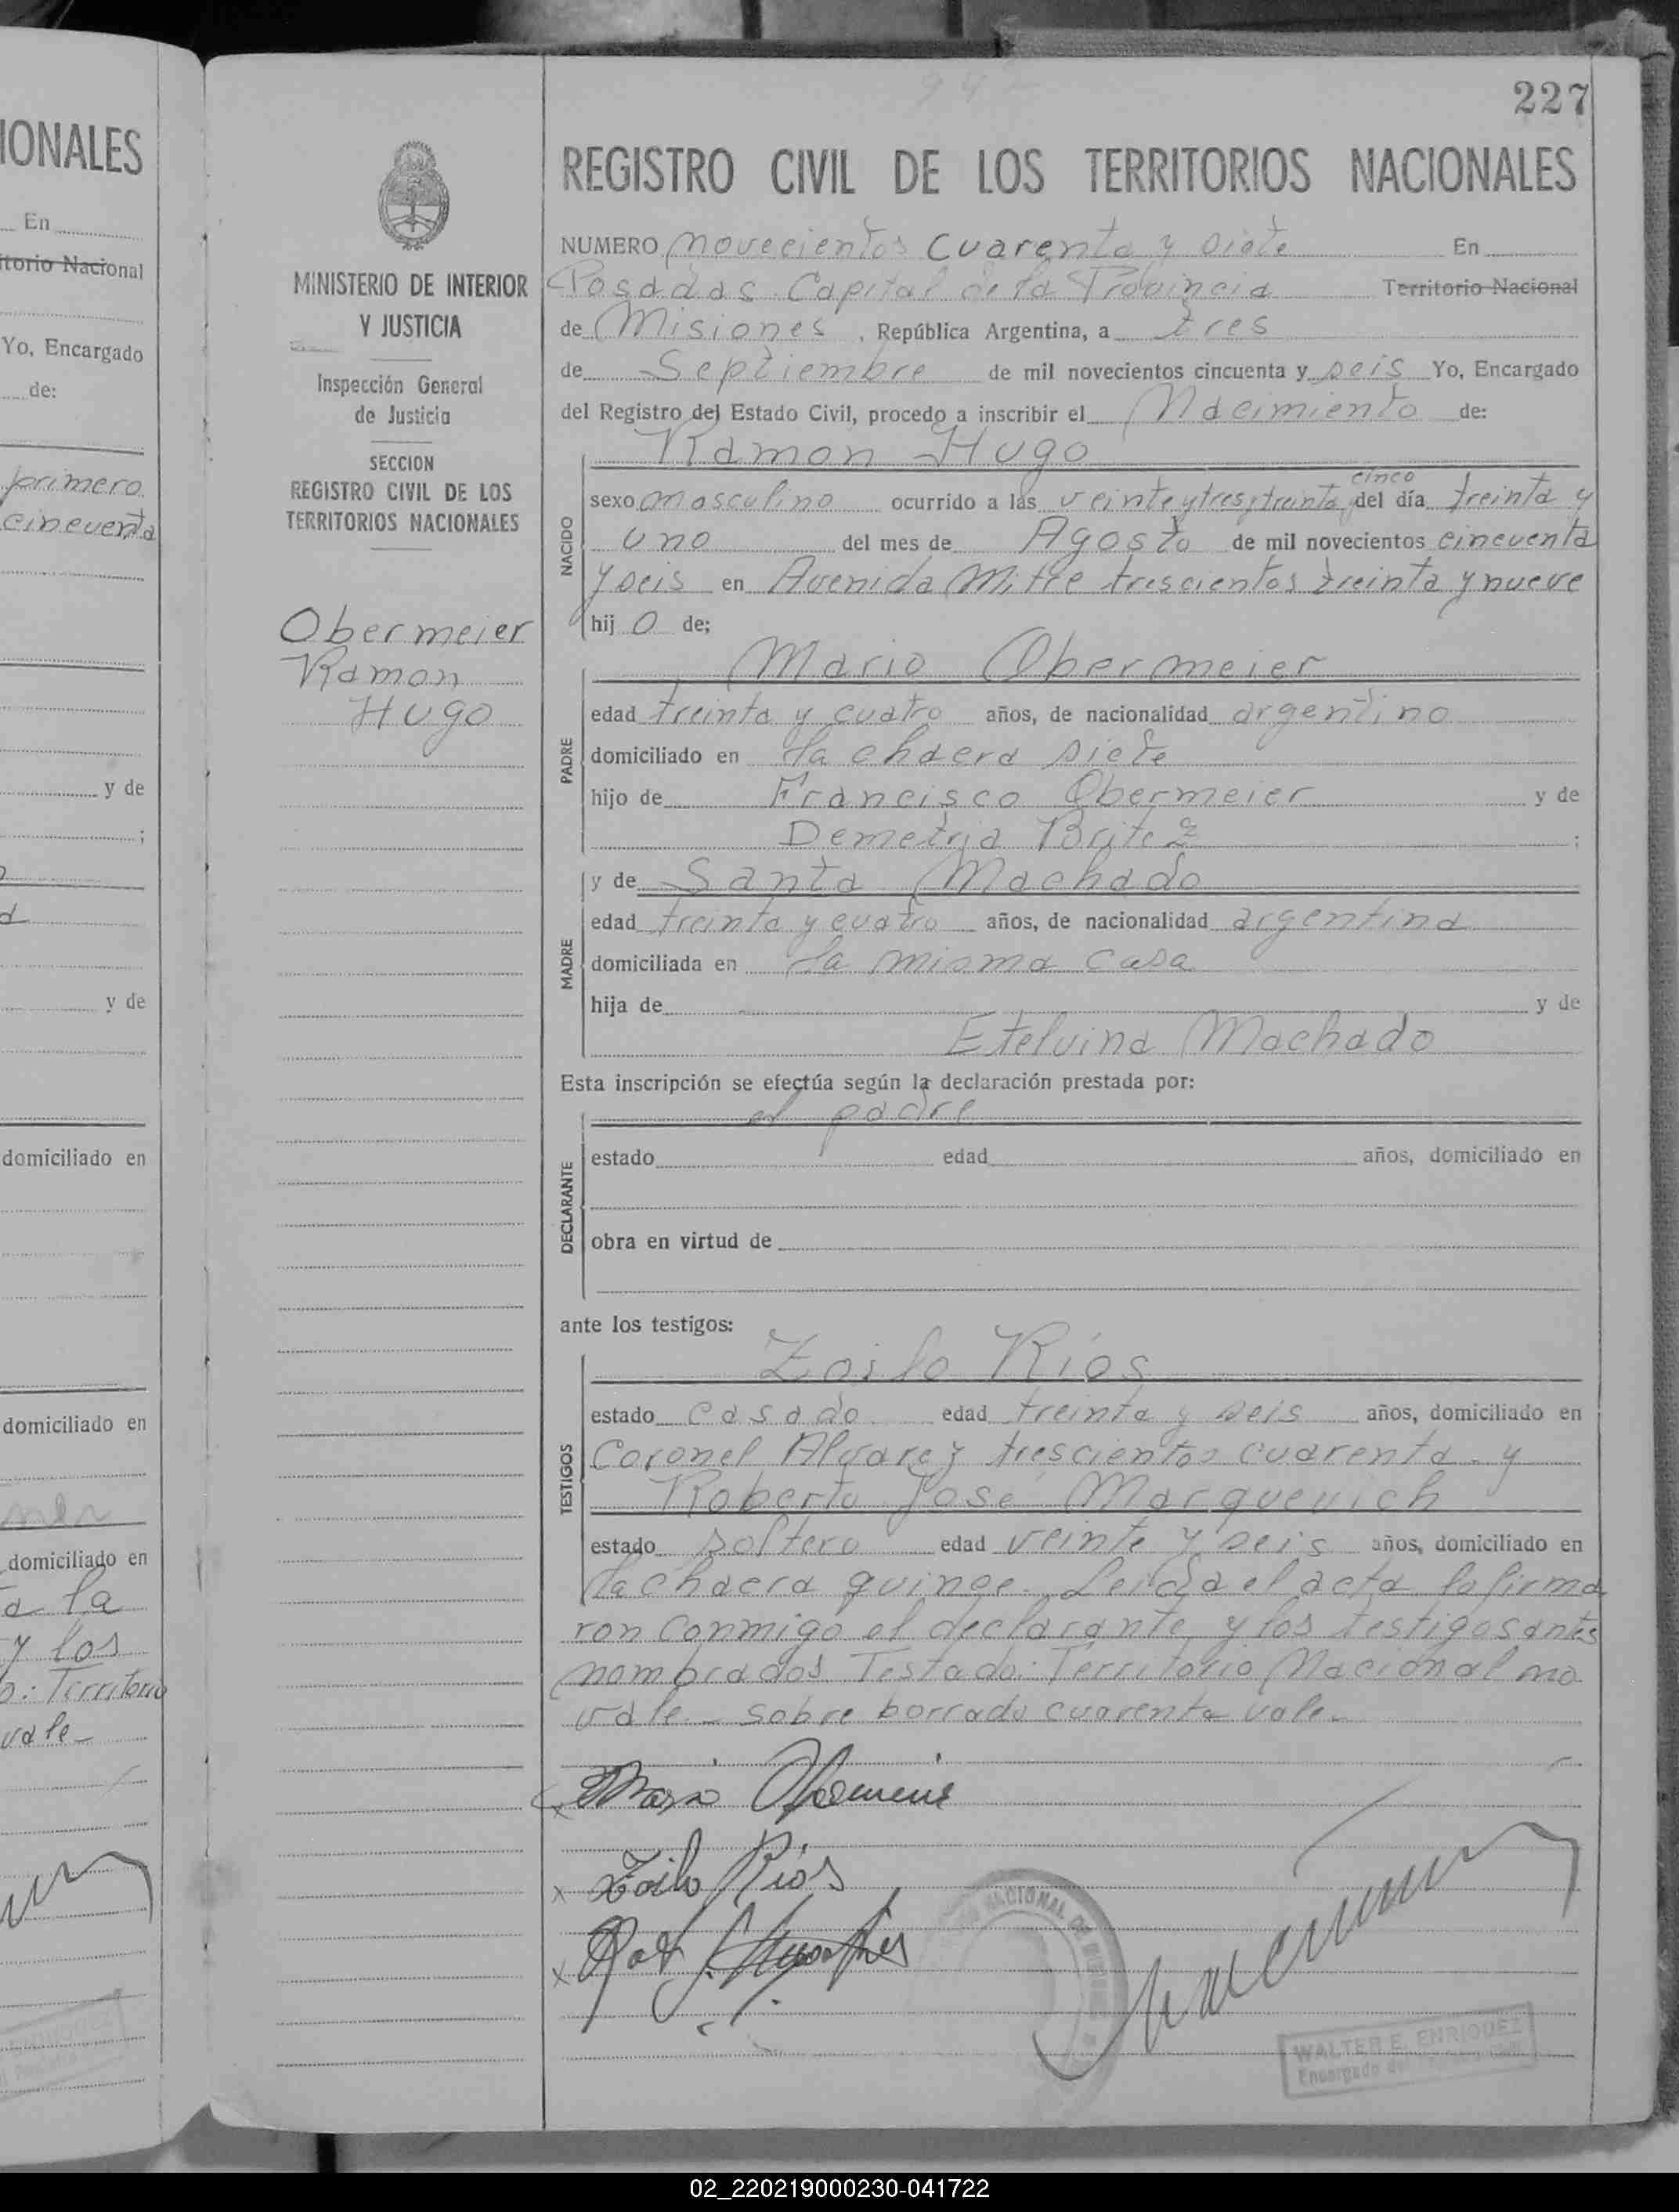 IONALES
En
itorio Nacional
Yo, Encargado
de:
primero
cincuenta
y de
;
d
y de
domiciliado en
domiciliado en
domiciliado en
a la
y los
o: Territorio
vale_
MINISTERIO DE INTERIOR
Y JUSTICIA
Inspección General
de Justicia
SECCION
REGISTRO CIVIL DE LOS
TERRITORIOS NACIONALES
Obermeier
Ramon
Hugo
227
REGISTRO CIVIL DE LOS TERRITORIOS NACIONALES
NUMERO novecientos cuarenta y siete En
Posadas Capital de la Provincia Territorio Nacional
de Misiones, República Argentina, a tres
de Septiembre de mil novecientos cincuenta y seis Yo, Encargado
del Registro del Estado Civil, procedo a inscribir el Nacimiento de:
Ramon Hugo
cinco
sexo masculino ocurrido a las veinte y tres y treinta y del día treinta y
uno del mes de Agosto de mil novecientos cincuenta
y seis en Avenida Mitre trescientos treinta y nueve
hij o de;
NACIDO
Mario Obermeier
edad treinta y cuatro años, de nacionalidad argentino
domiciliado en la chacra siete
hijo de Francisco Obermeier y de
Demetria Britez ;
PADRE
y de Santa Machado
edad treinta y cuatro años, de nacionalidad argentina
domiciliada en la misma casa
hija de y de
Etelvina Machado
MADRE
Esta inscripción se efectúa según la declaración prestada por:
el padre
estado edad años, domiciliado en
obra en virtud de
DECLARANTE
ante los testigos:
Zoilo Ríos
estado casado edad treinta y seis años, domiciliado en
Coronel Alvarez trescientos cuarenta y
Roberto José Marquevich
estado soltero edad veinte y seis años, domiciliado en
TESTIGOS
la chacra quince. Leida el acta la firma
ron conmigo el declarante y los testigos antes
nombrados Testado: Territorio Nacional no
vale _ sobre borrado cuarenta vale_
Mario Obermeier
x Zoilo Ríos
x
NACIONAL DE
WALTER E. ENRIQUEZ
02_220219000230-041722